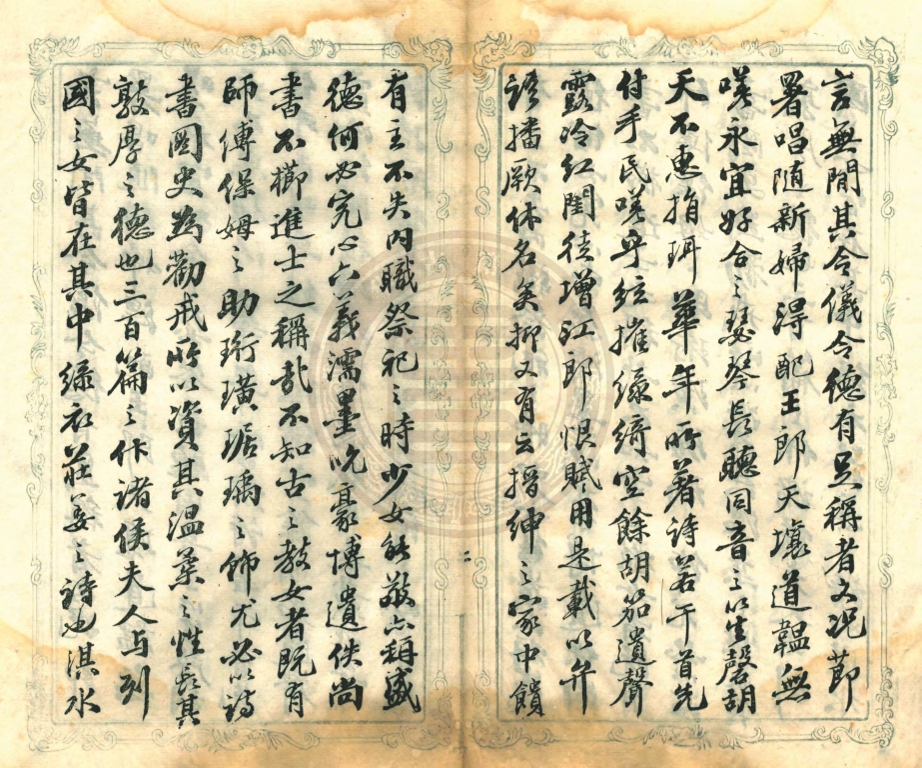 言無間其令儀令德有足稱者又况節
署唱隨新婦得配王郎天壤道韞無
嗟永宜好合之瑟琴長聽同音之笙磬胡
天不惠捐珥華年所著詩若干首先
付手民嗟乎絃摧緑綺空餘胡笳遺聲
露冷紅閨徒增江郎恨賦用是載以弁
語播厥休名矣抑又有云搢紳之家中饋
二
有主不失内職祭祀之時少女能敬亦稱盛
德何必究心六義濡墨吮毫博遺佚尚
書不櫛進士之稱哉不知古之教女者既有
師傅保姆之助珩璜琚瑀之飾尤必以詩
書圖史為勸戒所以資其溫柔之性長其
敦厚之德也三百篇之作諸侯夫人与列
國之女皆在其中緑衣莊姜之詩也淇水